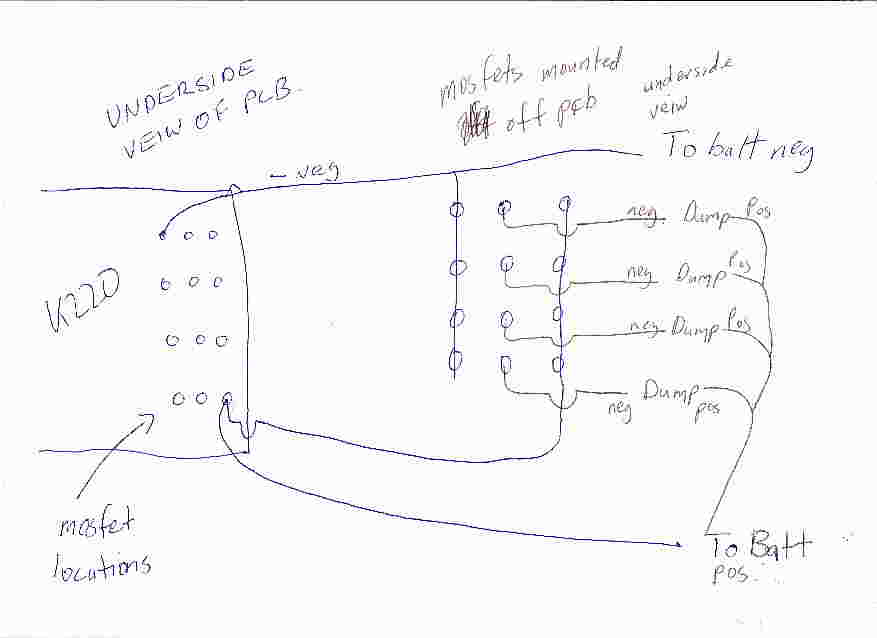 UNDERSIDE
VEIW OF PCB.
mosfets mounted
off pcb
underside
veiw
- neg
To batt neg
K220
neg. Dump Pos
neg Dump Pos
neg Dump Pos
neg Dump pos
mosfet
locations
To Batt
pos.